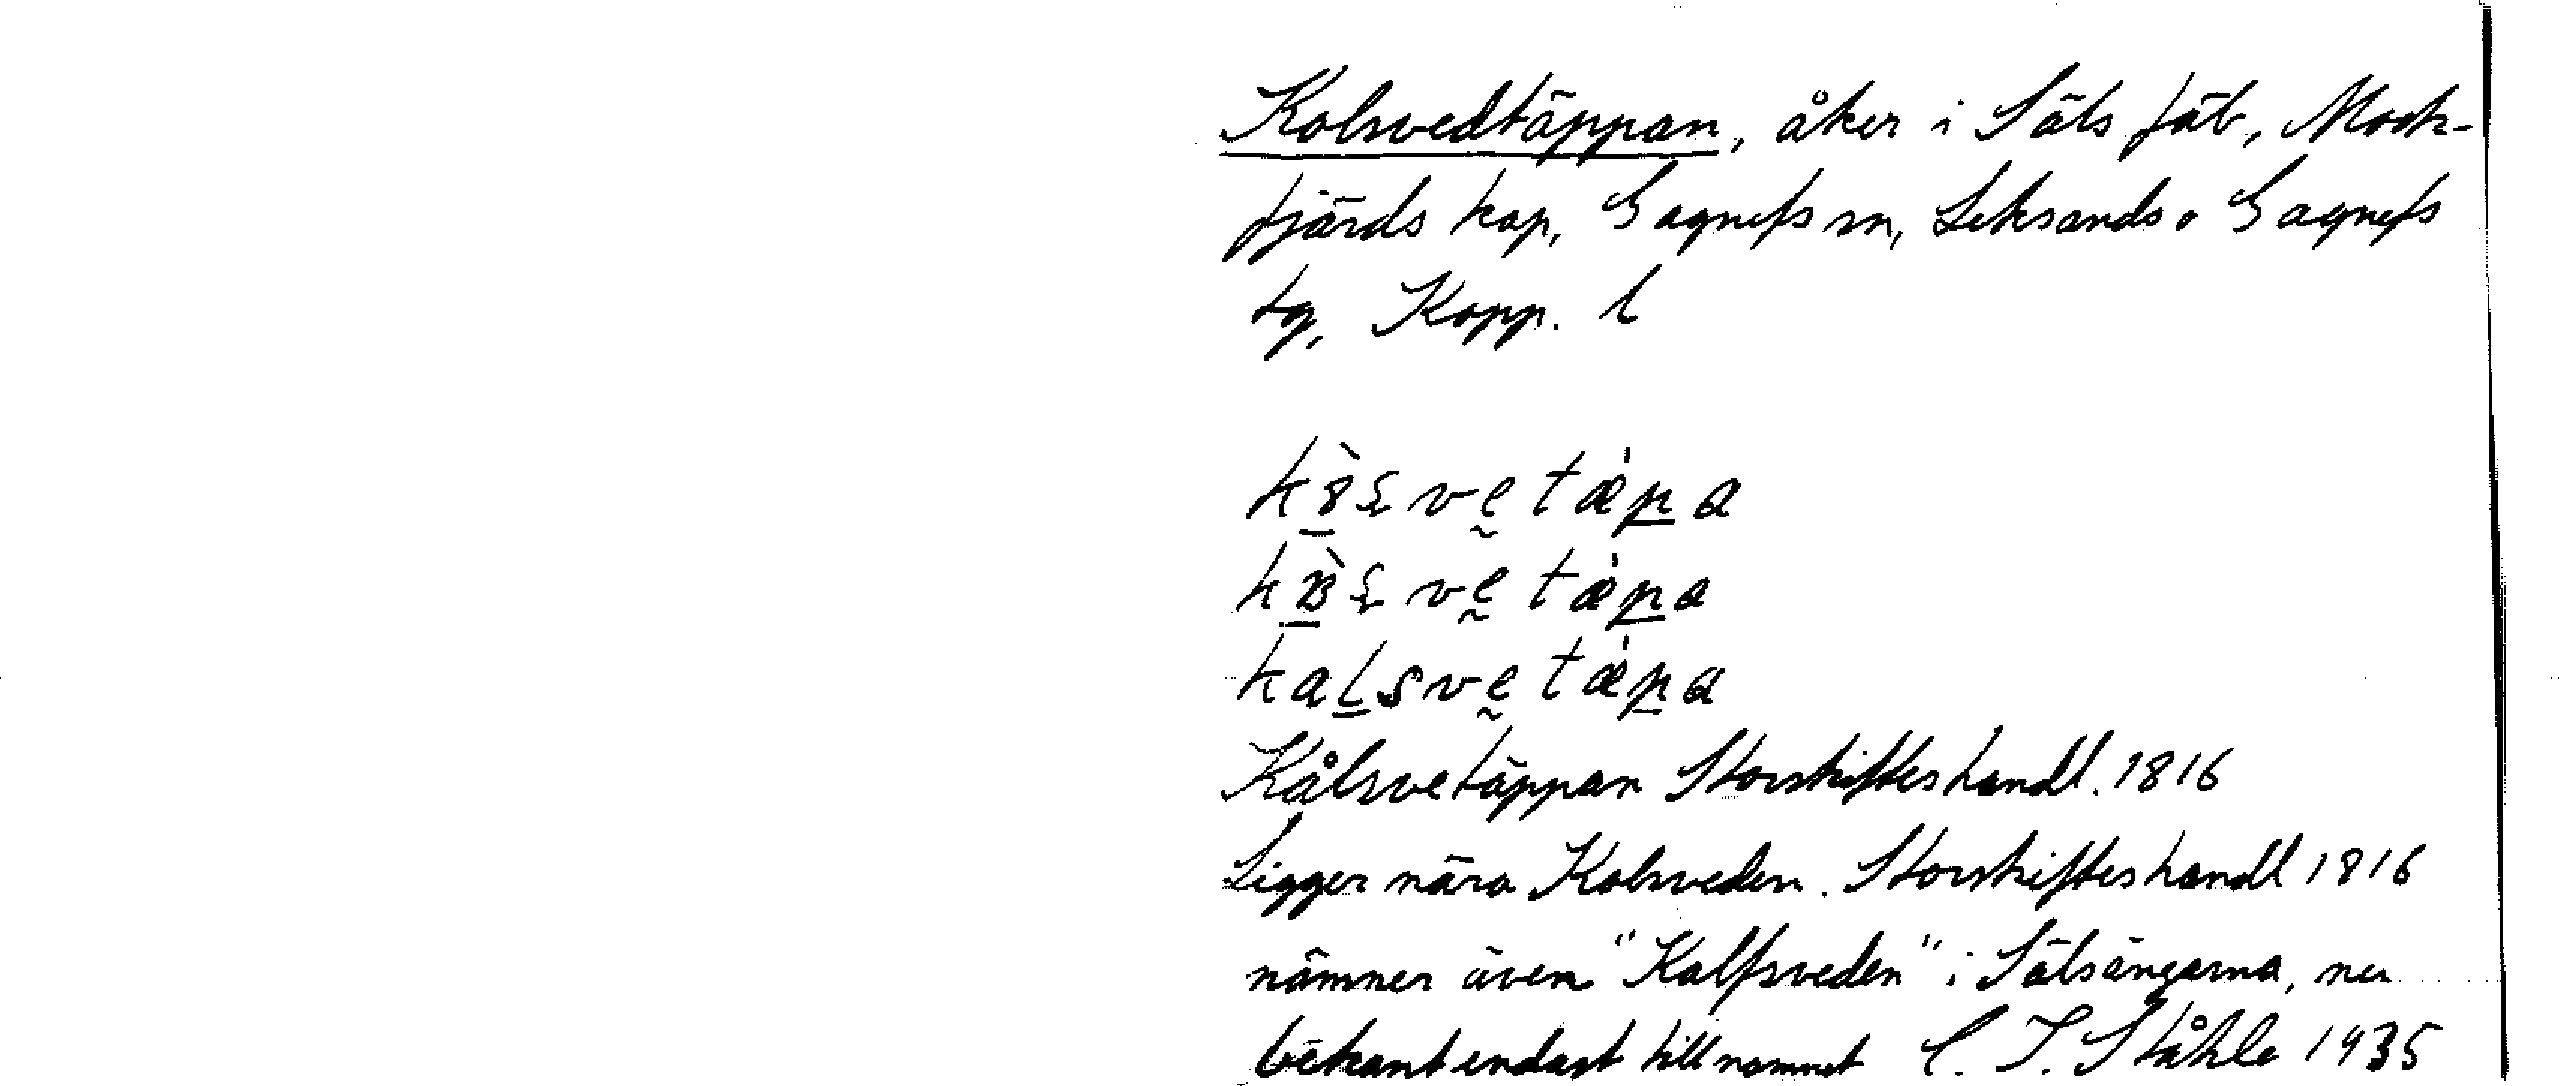 Kolsvedtäppan, åker i Säls fäb, Mock-
fjärds kap, Gagnefs sn, Leksands o Gagnefs
tg, Kopp. l
Kålsvetäppan Storskifteshandl. 1816
Ligger nära Kolsveden. Storskifteshandl 1816
nämner även "Kalfsveden" i Sälsängarna, nu
bekant endast till namnet C. I. Ståhle 1935